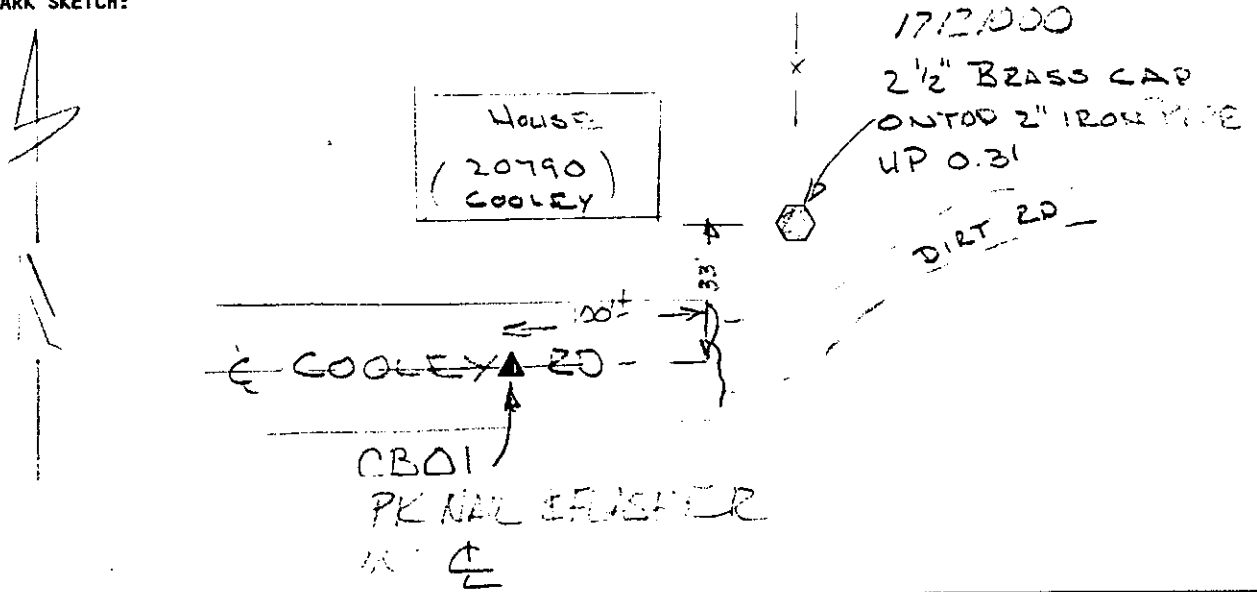 ARK SKETCH:
1712000
2 1/2" BRASS CAP
ONTOP 2" IRON PIPE
UP 0.3'
HOUSE
(20790)
COOLEY
DIRT RD
33'
100'±
℄ COOLEY RD
CB01
PK NAIL & FLASHER
℄
N